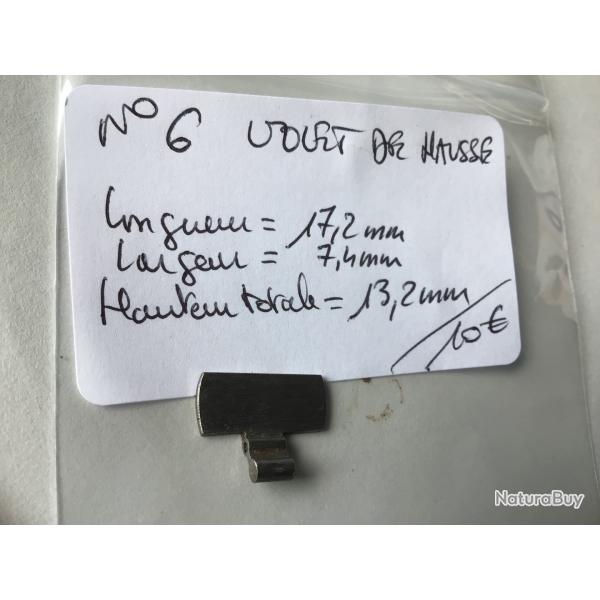 N° 6 VOLET DE HAUSSE
Longueur = 17,2mm
Largeur = 7,4mm
Hauteur totale = 13,2mm
10€
NaturaBuy